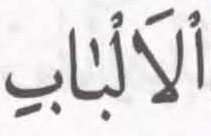 اْلاَلْبٰابِ